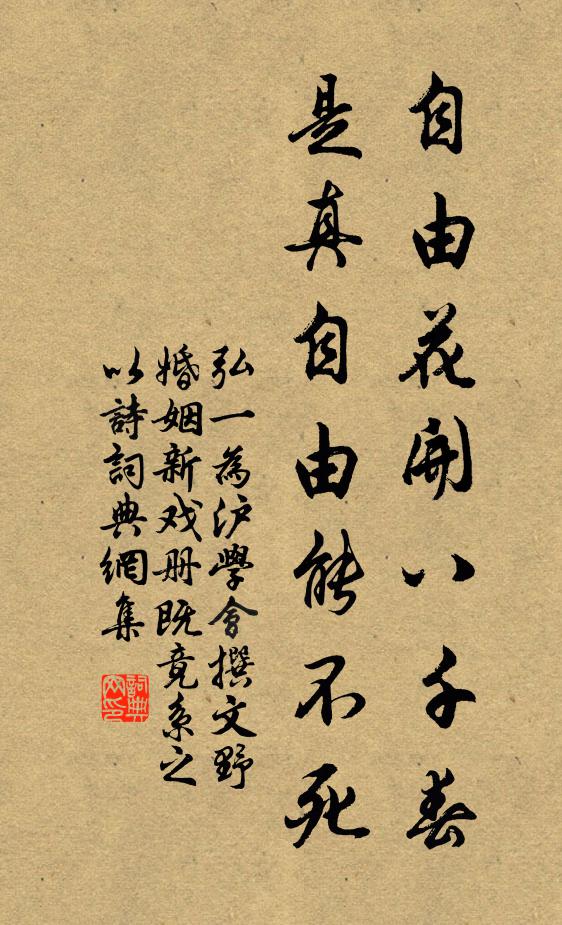 自由花開八千春
是真自由能不死
弘一為沪學會撰文野
婚姻新戏册既竟系之
以詩詞典網集
詞典
网印